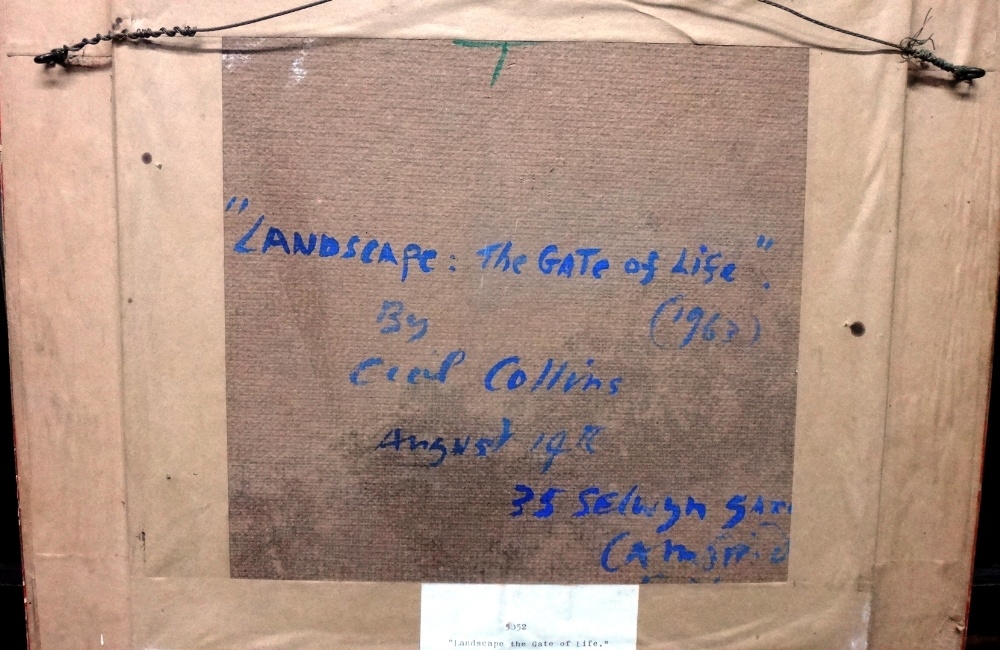 "LANDSCAPE: The GATE of Life".
By (1963)
Cecil Collins
August
35 SElwyn GAR
CAmbRID
5052
"Landscape the Gate of Life."